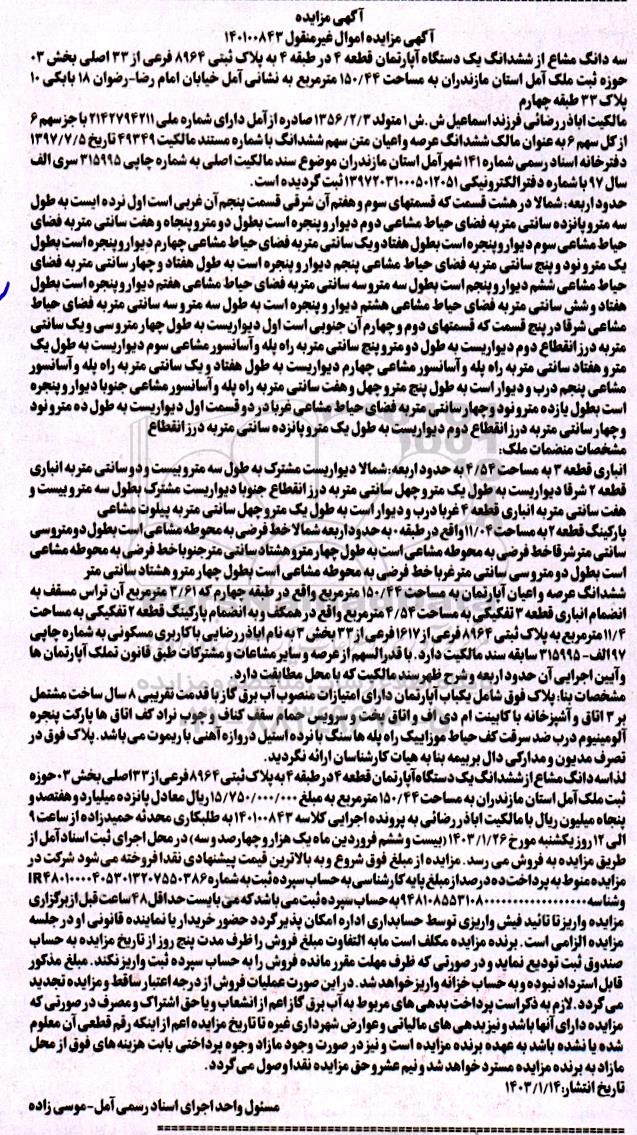 آگهی مزایده
آگهی مزایده اموال غیرمنقول ۱۴۰۱۰۰۸۴۳
سه دانگ مشاع از ششدانگ یک دستگاه آپارتمان قطعه ۴ در طبقه ۴ به پلاک ثبتی ۸۹۶۴ فرعی از ۳۳ اصلی بخش ۰۳
حوزه ثبت ملک آمل استان مازندران به مساحت ۱۵۰/۴۴ مترمربع به نشانی آمل خیابان امام رضا-رضوان ۱۸ بابکی ۱۰
پلاک ۳۳ طبقه چهارم
مالکیت اباذر رضائی فرزند اسماعیل ش.ش ۱ متولد ۱۳۵۶/۲/۳ صادره از آمل دارای شماره ملی ۲۱۴۲۷۹۴۲۱۱ با جز سهم ۶
از کل سهم ۶ به عنوان مالک ششدانگ عرصه و اعیان متن سهم ششدانگ با شماره مستند مالکیت ۴۹۳۴۹ تاریخ ۱۳۹۷/۷/۵
دفترخانه اسناد رسمی شماره ۱۴۱ شهر آمل استان مازندران موضوع سند مالکیت اصلی به شماره چاپی ۳۱۵۹۹۵ سری الف
سال ۹۷ با شماره دفتر الکترونیکی ۱۳۹۷۲۰۳۱۰۰۰۵۰۱۲۰۵۱ ثبت گردیده است.
حدود اربعه: شمالا در هشت قسمت که قسمتهای سوم و هفتم آن شرقی قسمت پنجم آن غربی است اول نرده ایست به طول
سه متر و پانزده سانتی متر به فضای حیاط مشاعی دوم دیوار و پنجره است بطول دو متر و پنجاه و هفت سانتی متر به فضای
حیاط مشاعی سوم دیوار و پنجره است بطول هفتاد و یک سانتی متر به فضای حیاط مشاعی چهارم دیوار و پنجره است بطول
یک متر و نود و پنج سانتی متر به فضای حیاط مشاعی پنجم دیوار و پنجره است به طول هفتاد و چهار سانتی متر به فضای
حیاط مشاعی ششم دیوار و پنجم است بطول سه متر و سه سانتی متر به فضای حیاط مشاعی هفتم دیوار و پنجره است بطول
هفتاد و شش سانتی متر به فضای حیاط مشاعی هشتم دیوار و پنجره است به طول سه متر و سه سانتی متر به فضای حیاط
مشاعی شرقا در پنج قسمت که قسمتهای دوم و چهارم آن جنوبی است اول دیواریست به طول چهار متر و سی و یک سانتی
متر به درز انقطاع دوم دیواریست به طول دو متر و پنج سانتی متر به راه پله و آسانسور مشاعی سوم دیواریست به طول یک
متر و هفتاد سانتی متر به راه پله و آسانسور مشاعی چهارم دیواریست به طول هفتاد و یک سانتی متر به راه پله و آسانسور
مشاعی پنجم درب و دیوار است به طول پنج متر و چهل و هفت سانتی متر به راه پله و آسانسور مشاعی جنوبا دیوار و پنجره
است بطول یازده متر و نود و چهار سانتی متر به فضای حیاط مشاعی غربا در دو قسمت اول دیواریست به طول ده متر و نود
و چهار سانتی متر به درز انقطاع دوم دیواریست به طول یک متر و پانزده سانتی متر به درز انقطاع
مشخصات منضمات ملک:
انباری قطعه ۳ به مساحت ۴/۵۴ به حدود اربعه: شمالا دیواریست مشترک به طول سه متر و بیست و دو سانتی متر به انباری
قطعه ۲ شرقا دیواریست به طول یک متر و چهل سانتی متر به درز انقطاع جنوبا دیواریست مشترک بطول سه متر و بیست و
هفت سانتی متر به انباری قطعه ۴ غربا درب و دیوار است به طول یک متر و چهل سانتی متر به پیلوت مشاعی
پارکینگ قطعه ۲ به مساحت ۱۱/۰۴ واقع در طبقه ۰ به حدود اربعه شمالا خط فرضی به محوطه مشاعی است بطول دو متر و سی
سانتی متر شرقا خط فرضی به محوطه مشاعی است به طول چهار متر و هشتاد سانتی متر جنوبا خط فرضی به محوطه مشاعی
است بطول دو متر و سی سانتی متر غربا خط فرضی به محوطه مشاعی است بطول چهار متر و هشتاد سانتی متر
ششدانگ عرصه و اعیان آپارتمان به مساحت ۱۵۰/۴۴ مترمربع واقع در طبقه چهارم که ۳/۶۱ مترمربع آن تراس مسقف به
انضمام انباری قطعه ۳ تفکیکی به مساحت ۴/۵۴ مترمربع واقع در همکف و به انضمام پارکینگ قطعه ۲ تفکیکی به مساحت
۱۱/۴ مترمربع به پلاک ثبتی ۸۹۶۴ فرعی از ۱۶۱۷ فرعی از ۳۳ بخش ۳ به نام اباذر رضایی با کاربری مسکونی به شماره چاپی
۹۷الف- ۳۱۵۹۹۵ سابقه سند مالکیت دارد. با قدرالسهم از عرصه و سایر مشاعات و مشترکات طبق قانون تملک آپارتمان ها
و آیین اجرایی آن حدود اربعه و شرح ظهر سند مالکیت که با محل مطابقت دارد.
مشخصات بنا: پلاک فوق شامل یکباب آپارتمان دارای امتیازات منصوب آب برق گاز با قدمت تقریبی ۸ سال ساخت مشتمل
بر ۳ اتاق و آشپزخانه با کابینت ام دی اف و اتاق پخت و سرویس حمام سقف کناف و چوب نراد کف اتاق ها پارکت پنجره
آلومینیوم درب ضد سرقت کف حیاط موزاییک راه پله ها سنگ با نرده استیل دروازه آهنی با ریموت می باشد. پلاک فوق در
تصرف مدیون و مدارکی دال بر بیمه بنا به هیات کارشناسان ارائه نگردید.
لذا سه دانگ مشاع از ششدانگ یک دستگاه آپارتمان قطعه ۴ در طبقه ۴ به پلاک ثبتی ۸۹۶۴ فرعی از ۳۳ اصلی بخش ۰۳ حوزه
ثبت ملک آمل استان مازندران به مساحت ۱۵۰/۴۴ مترمربع به مبلغ ۱۵/۷۵۰/۰۰۰/۰۰۰ ریال معادل پانزده میلیارد و هفتصد و
پنجاه میلیون ریال با مالکیت اباذر رضائی به پرونده اجرایی کلاسه ۱۴۰۱۰۰۸۴۳ به طلبکاری محدثه حمیدزاده از ساعت ۹
الی ۱۲ روز یکشنبه مورخ ۱۴۰۳/۱/۲۶ (بیست و ششم فروردین ماه یک هزار و چهارصد و سه) در محل اجرای ثبت اسناد آمل از
طریق مزایده به فروش می رسد. مزایده از مبلغ فوق شروع و به بالاترین قیمت پیشنهادی نقدا فروخته می شود شرکت در
مزایده منوط به پرداخت ده درصد از مبلغ پایه کارشناسی به حساب سپرده ثبت به شماره IR۴۸۰۱۰۰۰۰۴۰۵۳۰۱۳۲۰۷۵۵۰۳۸۶
و شناسه به حساب سپرده ثبت می باشد که می بایست حداقل ۴۸ ساعت قبل از برگزاری
مزایده واریز تا تائید فیش واریزی توسط حسابداری اداره امکان پذیر گردد حضور خریدار یا نماینده قانونی او در جلسه
مزایده الزامی است. برنده مزایده مکلف است مابه التفاوت مبلغ فروش را ظرف مدت پنج روز از تاریخ مزایده به حساب
صندوق ثبت تودیع نماید و در صورتی که ظرف مهلت مقرر مانده فروش را به حساب سپرده ثبت واریز نکند. مبلغ مذکور
قابل استرداد نبوده و به حساب خزانه واریز خواهد شد. در این صورت عملیات فروش از درجه اعتبار ساقط و مزایده تجدید
می گردد. لازم به ذکر است پرداخت بدهی های مربوط به آب برق گاز اعم از انشعاب و یا حق اشتراک و مصرف در صورتی که
مزایده دارای آنها باشد و نیز بدهی های مالیاتی و عوارض شهرداری غیره تا تاریخ مزایده اعم از اینکه رقم قطعی آن معلوم
شده یا نشده باشد به عهده برنده مزایده است و نیز در صورت وجود مازاد وجوه پرداختی بابت هزینه های فوق از محل
مازاد به برنده مزایده مسترد خواهد شد و نیم عشر و حق مزایده نقدا وصول می گردد.
تاریخ انتشار: ۱۴۰۳/۱/۱۴
مسئول واحد اجرای اسناد رسمی آمل-موسی زاده